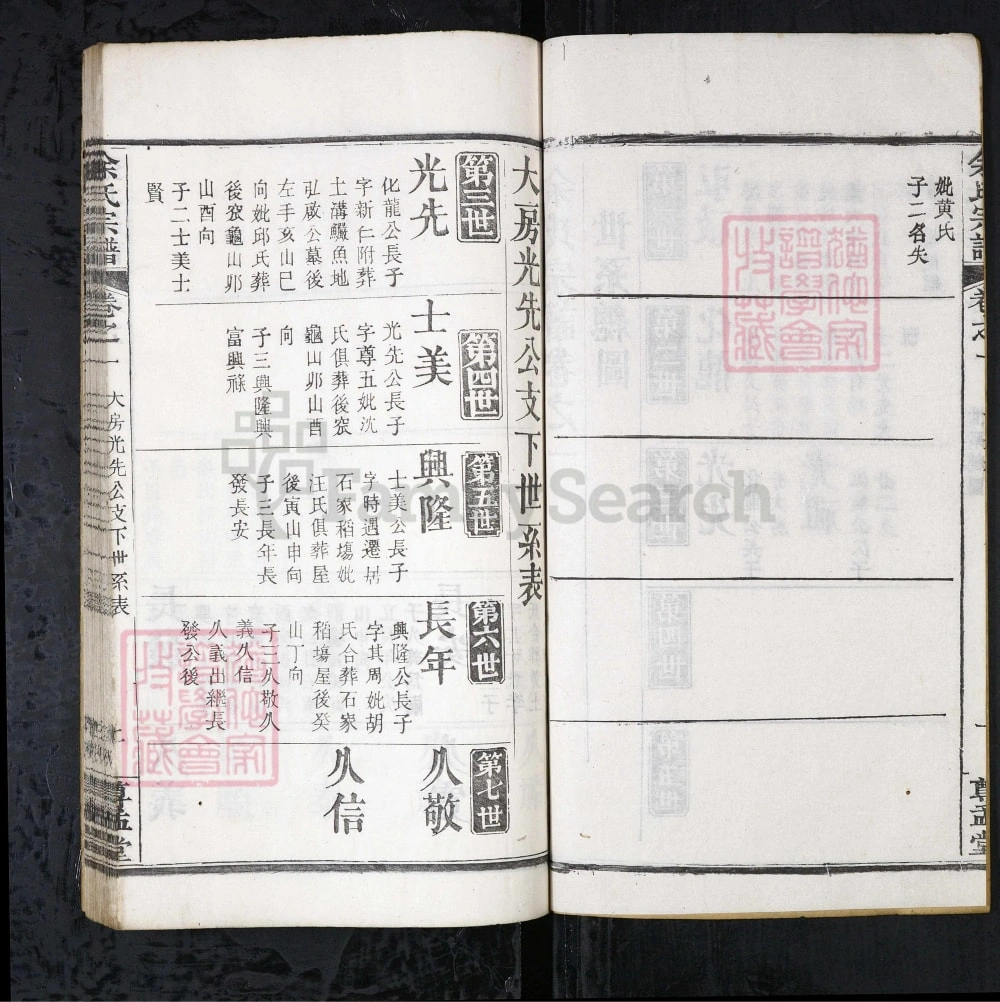 余氏宗譜
卷之一
尊孟堂
妣黃氏
子二名失
大房光先公支下世系表
第三世
光先
化龍公長子
字新仁附葬
土溝鱖魚地
弘啟公墓後
左手亥山巳
向妣邱氏葬
後窊龜山邜
山酉向
子二士美士
賢
第四世
士美
光先公長子
字尊五妣沈
氏俱葬後窊
龜山邜山酉
向
子三興隆興
富興祿
第五世
興隆
士美公長子
字時遇遷居
石家稻塲妣
汪氏俱葬屋
後寅山申向
子三長年長
發長安
第六世
長年
興隆公長子
字其周妣胡
氏合葬石家
稻塲屋後癸
山丁向
子三从敬从
義从信
从義出繼長
發公後
第七世
从敬
从信
余氏宗譜
卷之一
大房光先公支下世系表
尊孟堂
FamilySearch